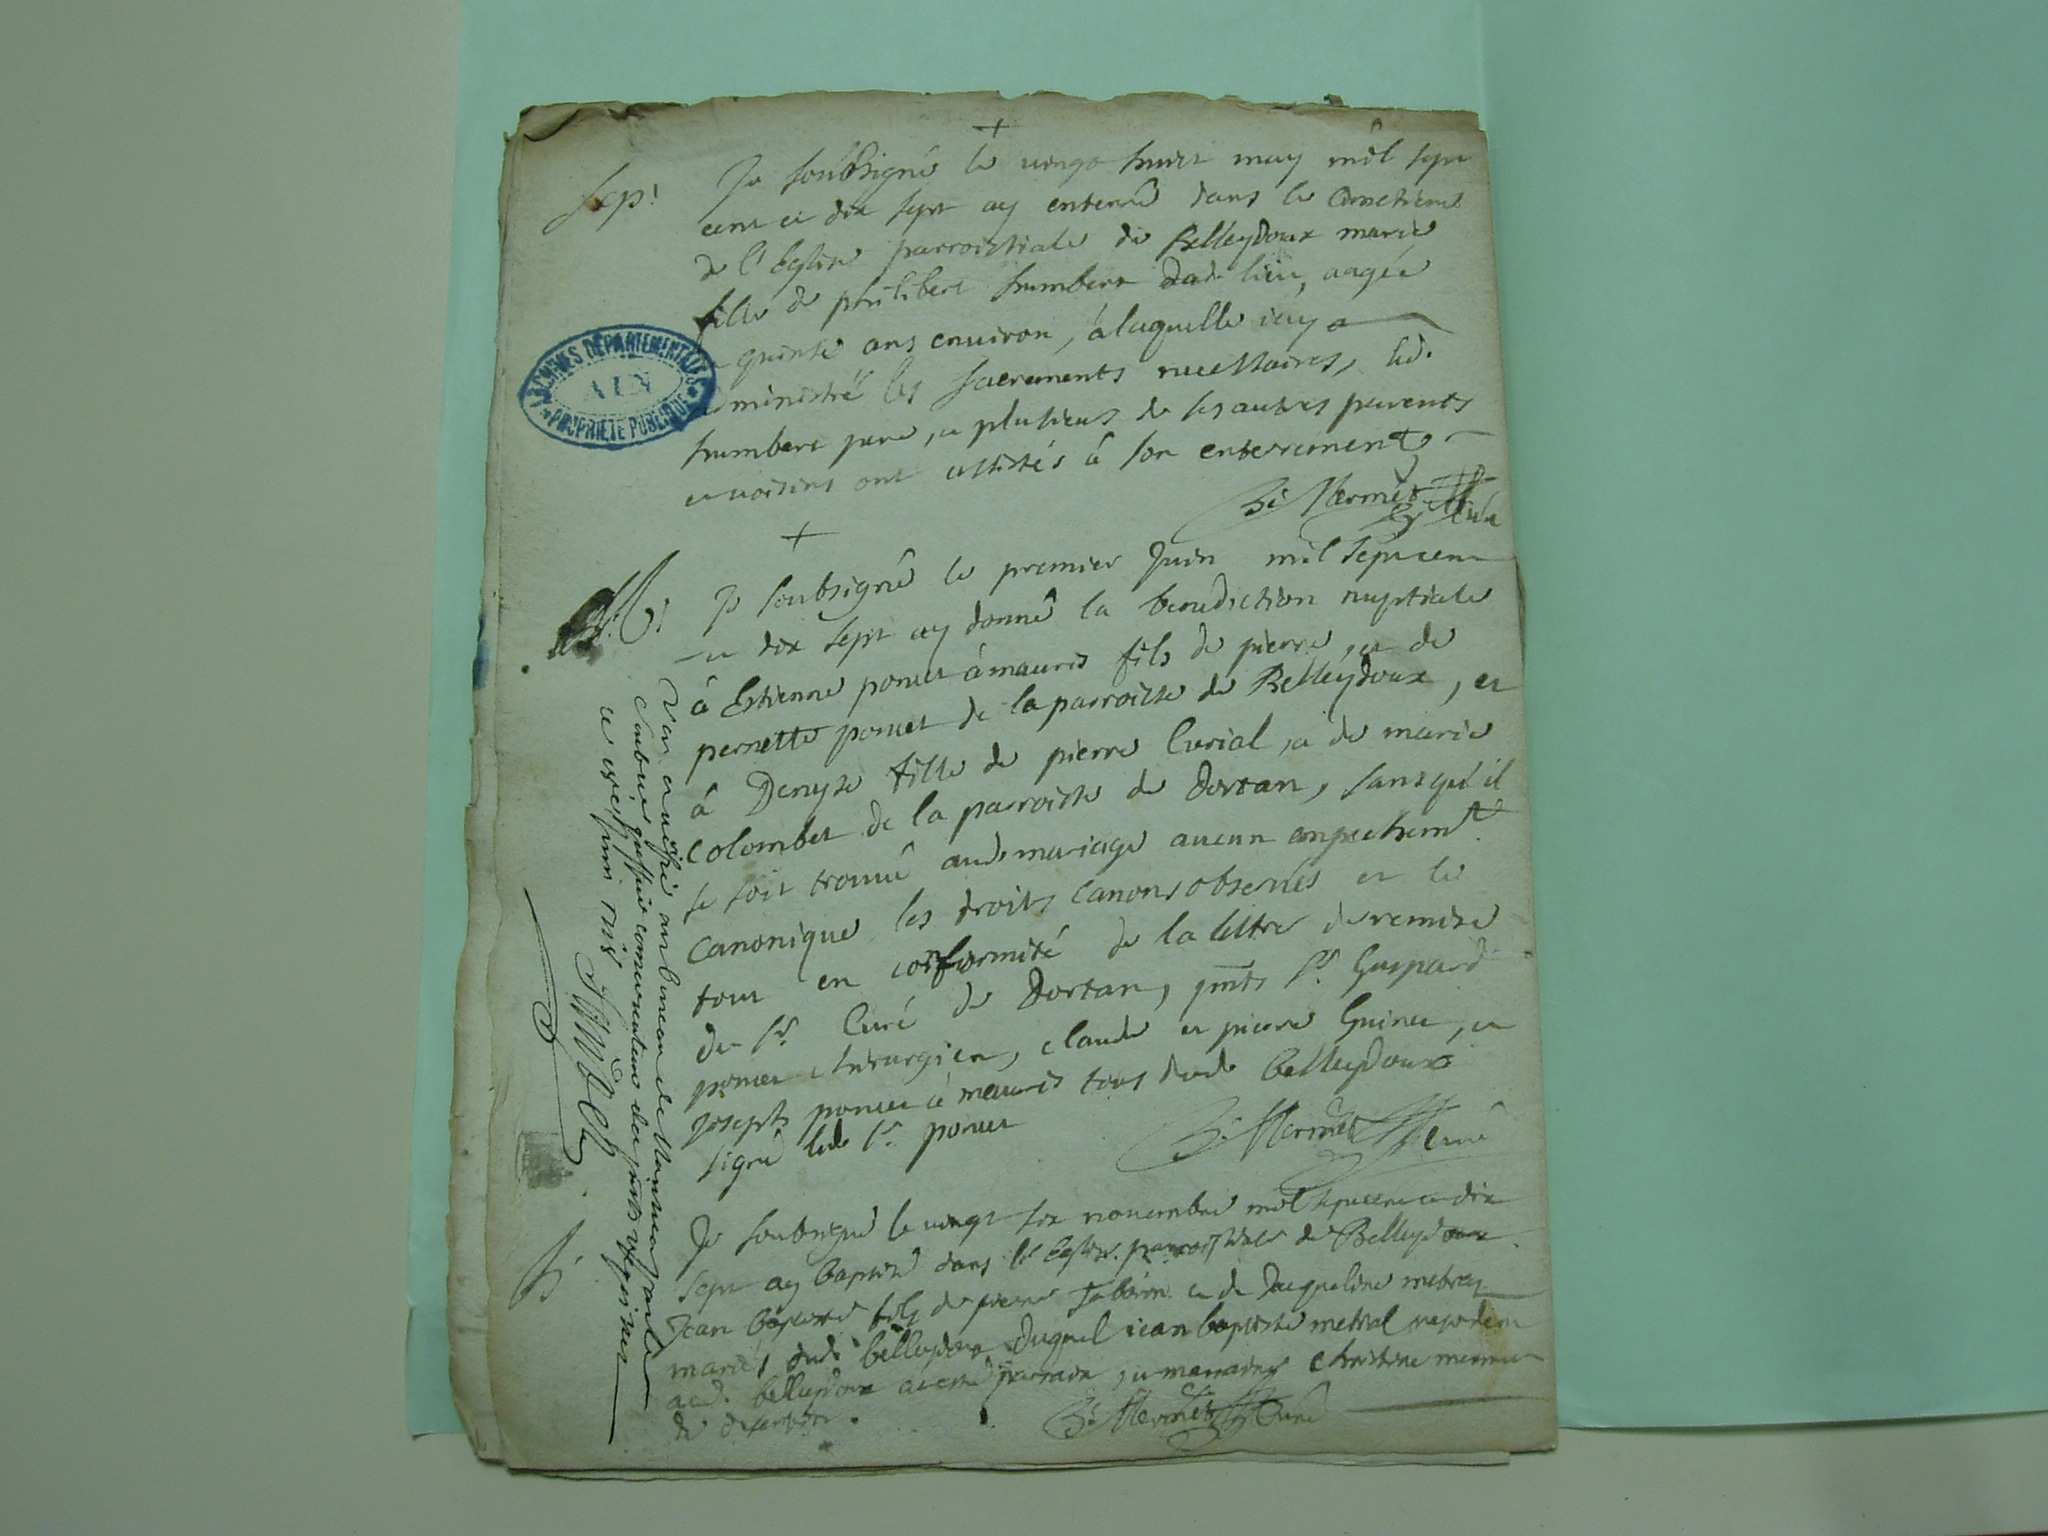 +
Sep!
Je soubsigné le vingt huict may mil sept
cent et dix sept ay enterré dans le cimetiere
de l'Eglise parroissiale de Belleydoux marie
fille de philibert humbert dud. lieu, aagée
quinse ans environ, à laquelle iay
administré les sacrements necessaires, led.
humbert pere, et plusieurs de ses autres parents
et voisins ont assistés à son enterrement
Bé Mermet Curé
ARCHIVES DEPARTEMENTALES
AIN
PROPRIETE PUBLIQUE
+
M!
Je soubsigné le premier Juin mil sept cent
et dix sept ay donné la benediction nuptiale
à Estienne poncet àmauris fils de pierre, et de
pernette poncet de la parroisse de Belleydoux, et
à Denyse fille de pierre Curial, et de marie
Colombet de la parroisse de Dortan, sans qu'il
se soit trouvé aud. mariage aucun empechemt.
canonique les droits canons observés et le
tout en conformité de la lettre de remise
du Sr. Curé de Dortan, pnts Sr. Gaspard
poncet chirurgien, claude et pierre Guinet, et
Joseph poncet à mauris tous dud. Belleydoux
signé led. Sr. poncet
Bé Mermet Curé
B
Je soubsigné le vingt six novembre mil sept cent et dix
sept ay baptisé dans l'Eglise parroissiale de Belleydoux
Jean baptiste fils de pierre et de Jacqueline
mariés dud. belleydoux duquel iean baptiste mettral
aud. belleydoux a esté parrain, et marraine christine
de
Bé Mermet Curé
ce juin 1718